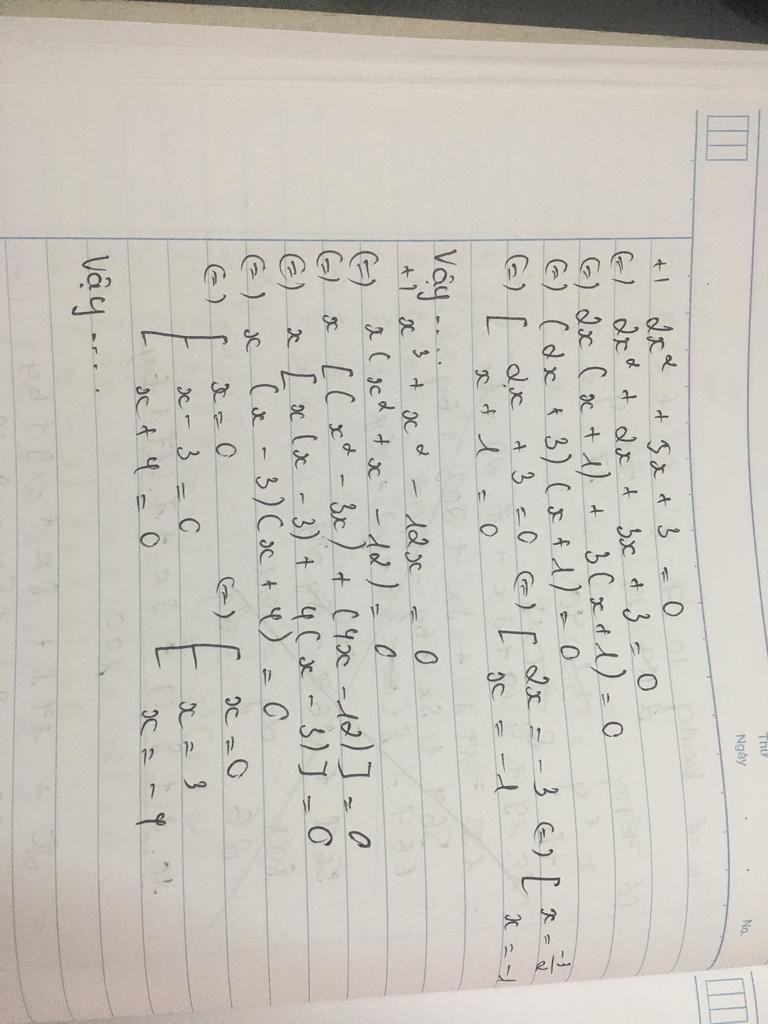 Thứ
Ngày
No.
+) 2x² + 5x + 3 = 0
(=) 2x² + 2x + 3x + 3 = 0
(=) 2x(x + 1) + 3(x + 1) = 0
(=) (2x + 3)(x + 1) = 0
(=) [ 2x + 3 = 0 (=) [ 2x = -3 (=) [ x = -3/2
x + 1 = 0 x = -1 x = -1
Vậy ....
+) x³ + x² - 12x = 0
(=) x(x² + x - 12) = 0
(=) x [(x² - 3x) + (4x - 12)] = 0
(=) x [x(x - 3) + 4(x - 3)] = 0
(=) x (x - 3)(x + 4) = 0
(=) [ x = 0 (=) [ x = 0
[ x - 3 = 0 [ x = 3
x + 4 = 0 x = -4
Vậy ....